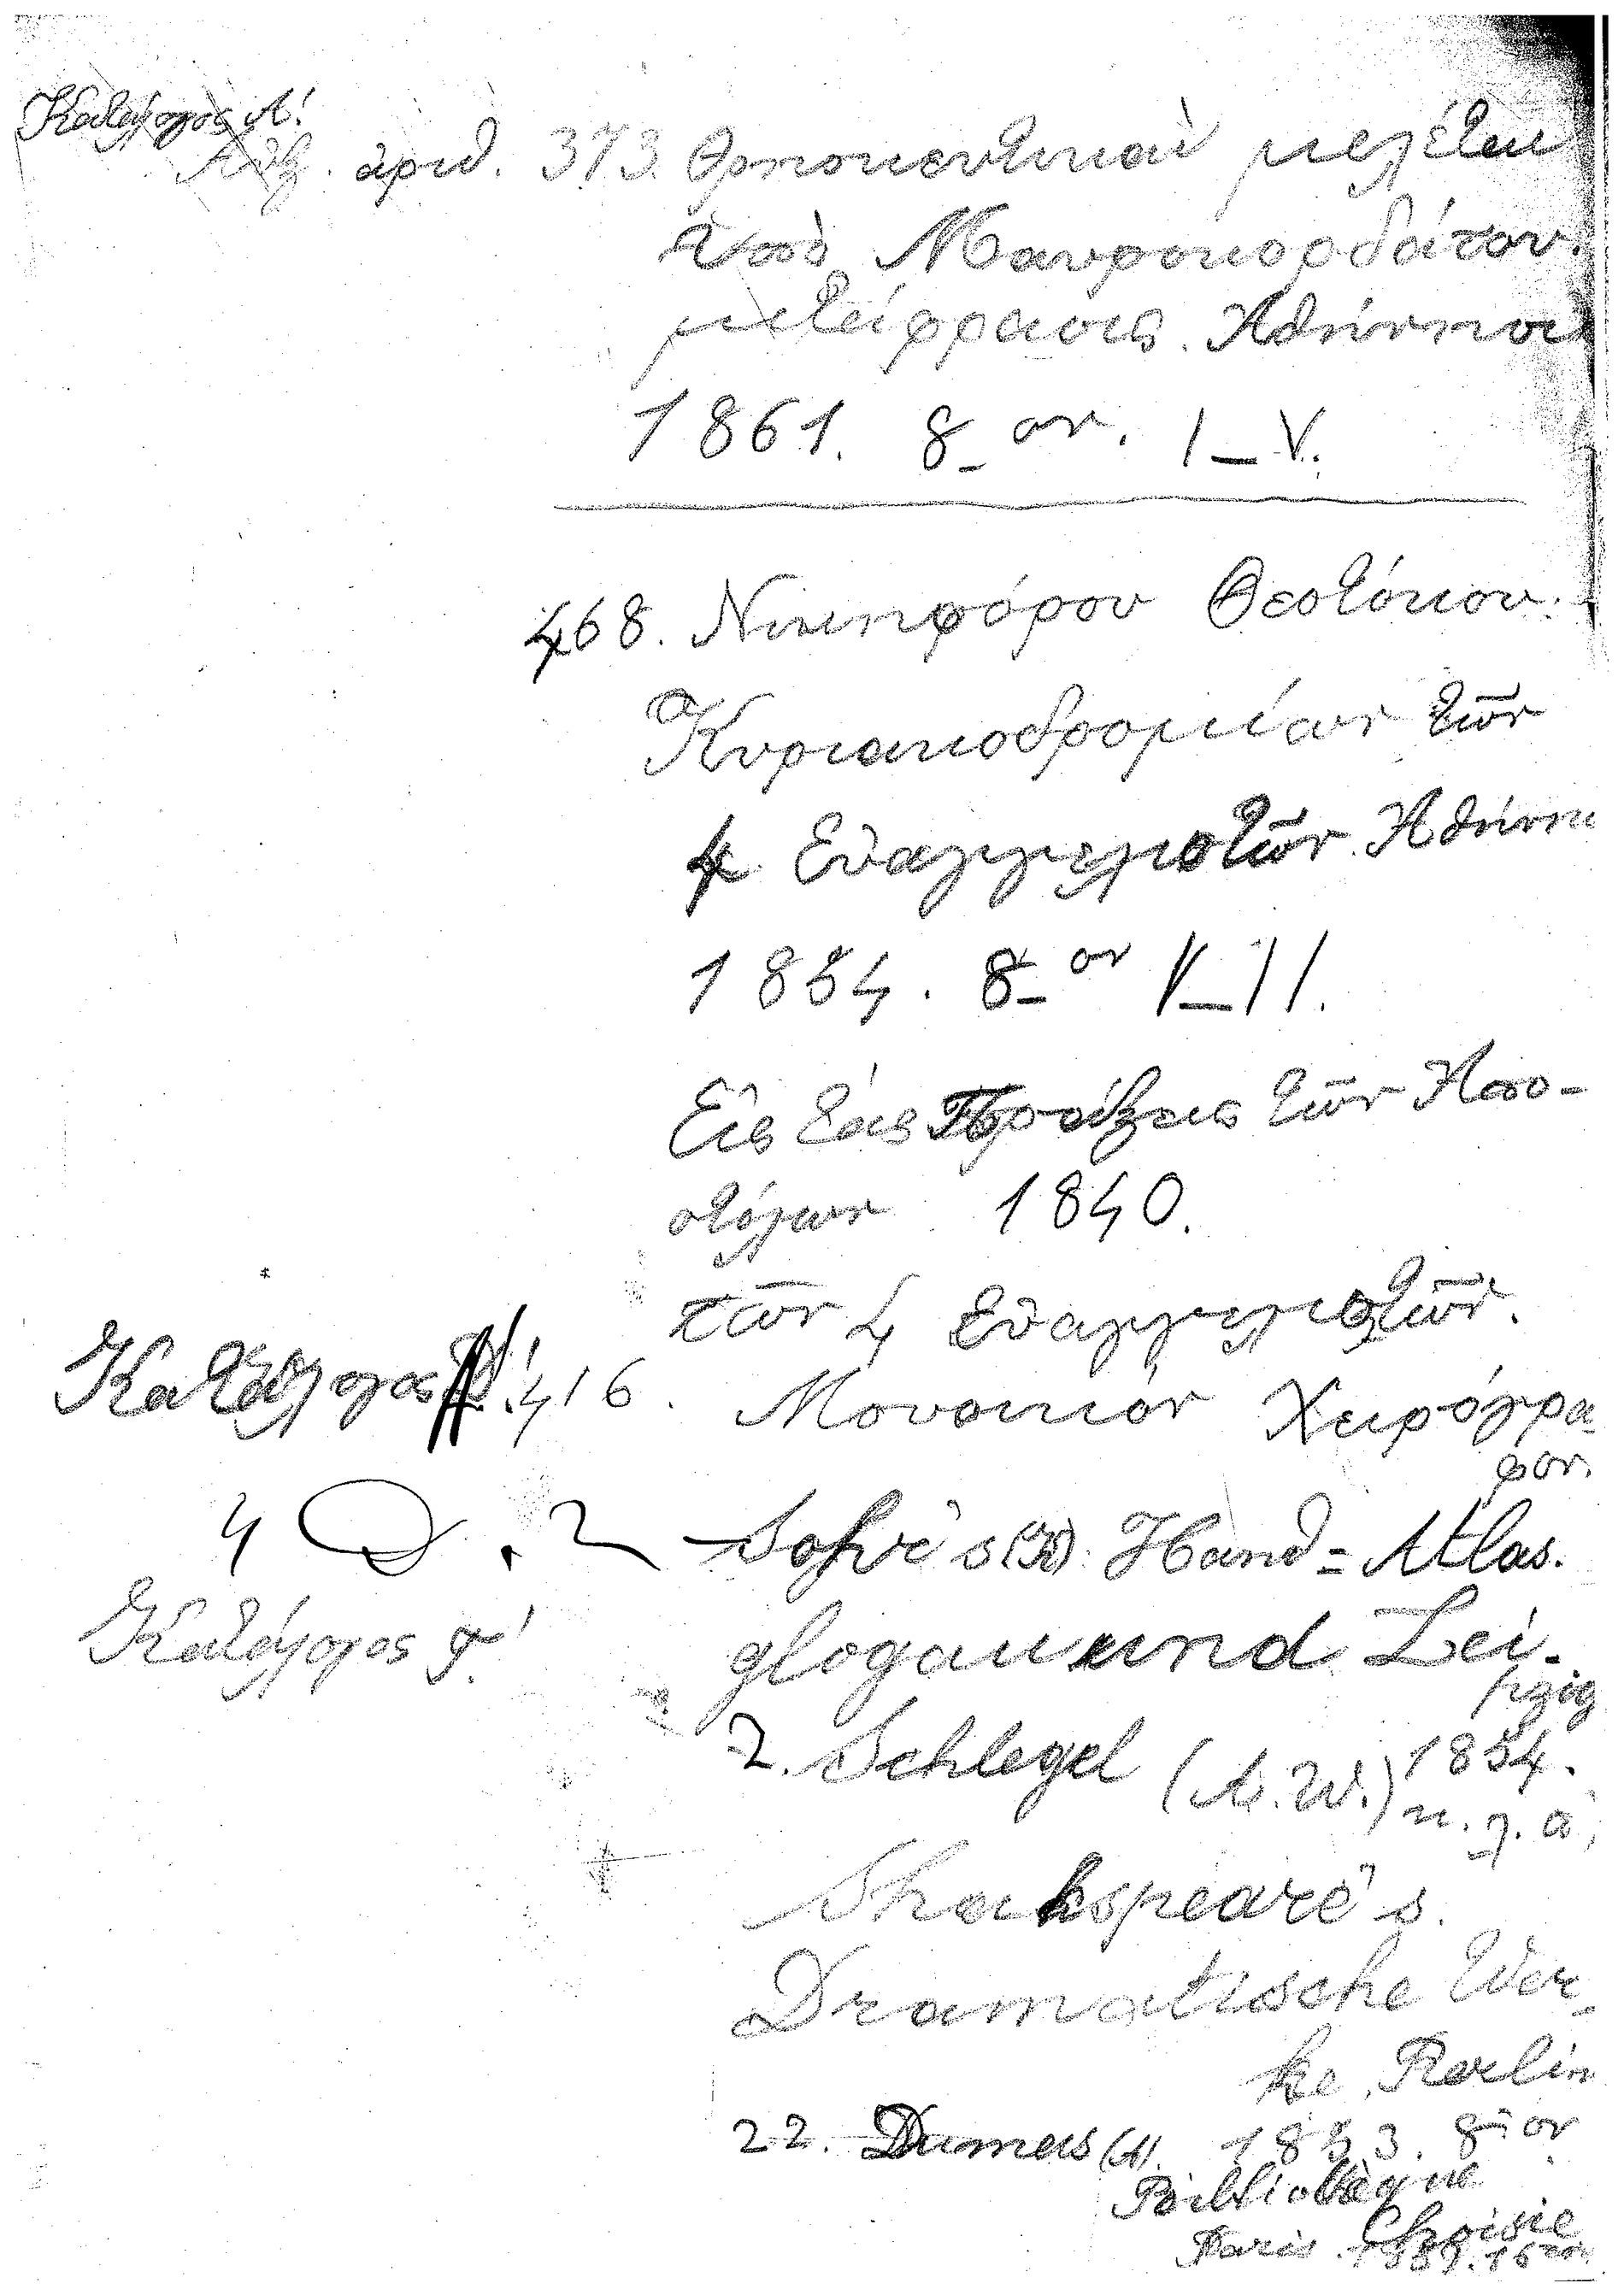 Κατάλογος Α!
Αὔξ. ἀριθ. 373. Θρησκευτικαὶ μελέται
ὑπὸ Μαυροκορδάτου.
μετάφρασις. Ἀθήνησι
1861. 8ον. I_V.
468. Νικηφόρου Θεοτόκου.
Κυριακοδρομίων τῶν
4. Εὐαγγελιστῶν. Ἀθήνησι
1854. 8ον
Εἰς τάς Πράξεις τῶν Ἀπο-
στόλων 1840.
τῶν 4 Εὐαγγελιστῶν.
Κατάλογος Α! 416. Μουσικόν Χειρόγρα-
φον.
4 2 Sohr's (K). Hand = Atlas.
Κατάλογος γ! glogau und Lei-
pzig
2. Schlegel (A. W.) 1854.
κ. λ. ἀ,
Shakspeare's.
Dramatische Wer-
ke, Berlin
22. Dumas (A). 1853. 8ον
Bibliotèque
Choisie
Paris.